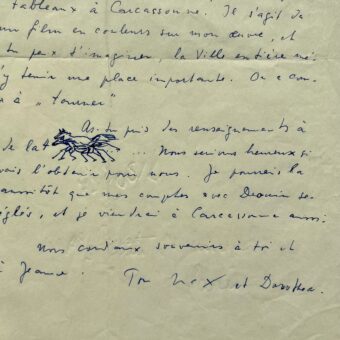 tableaux à Carcassonne. Il s'agit da
un film en couleurs sur mon œuvre, et
tu peux t'imaginer, la Ville entière né
s'y tenir une place importante. On a com
à "tourner"
As-tu pris des renseignements à
de la ... Nous serions heureux si
vais l'obtenir pour nous. Je pourrais la
aussitôt que mes comptes avec Drouin se
réglés, et je viendrai à Carcassonne aussi
Nous cordiaux souvenirs à toi et
à Jeanne. Ton Max et Dorothea.